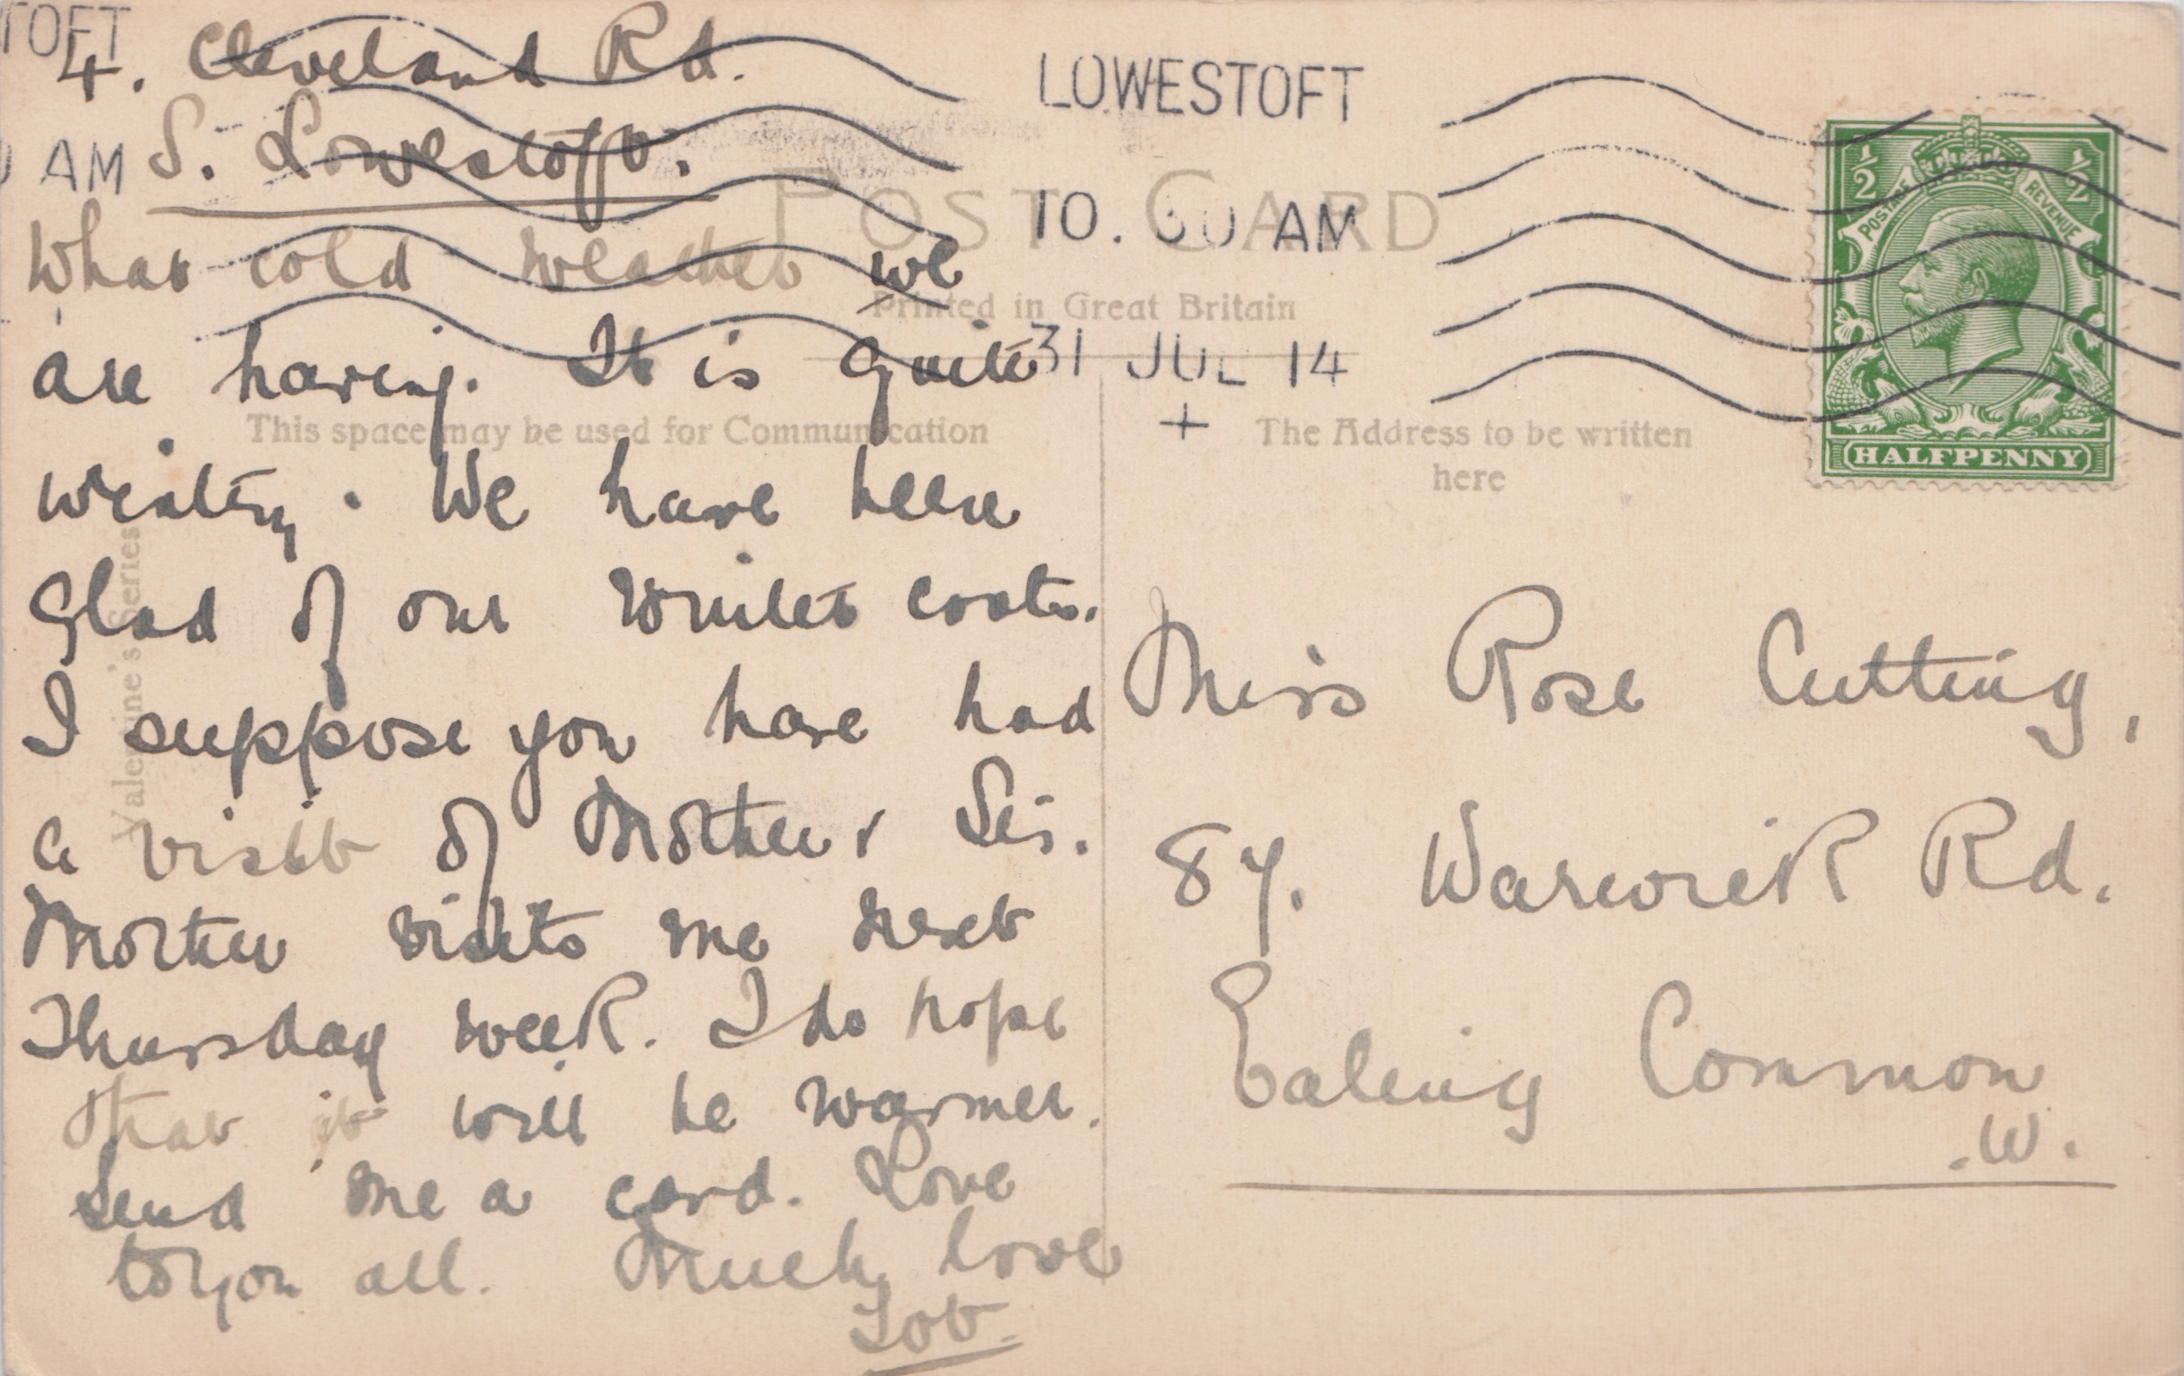 4. Cleveland Rd.
S. Lowestoft.
What cold weather we
are having. It is quite
wintry. We have been
glad of our winter coats.
I suppose you have had
a visit of Mother & Sis.
Mother visits me next
Thursday week. I do hope
that it will be warmer.
Send me a card. Love
to you all. Much love
TOFT
AM
LOWESTOFT
10.30 AM
31 JUL 14
+
POST CARD
Printed in Great Britain
This space may be used for Communication
The Address to be written
here
Valentine's Series
½ ½
POSTAGE REVENUE
HALFPENNY
Miss Rose Cutting,
87. Warwick Rd.
Ealing Common
.W.